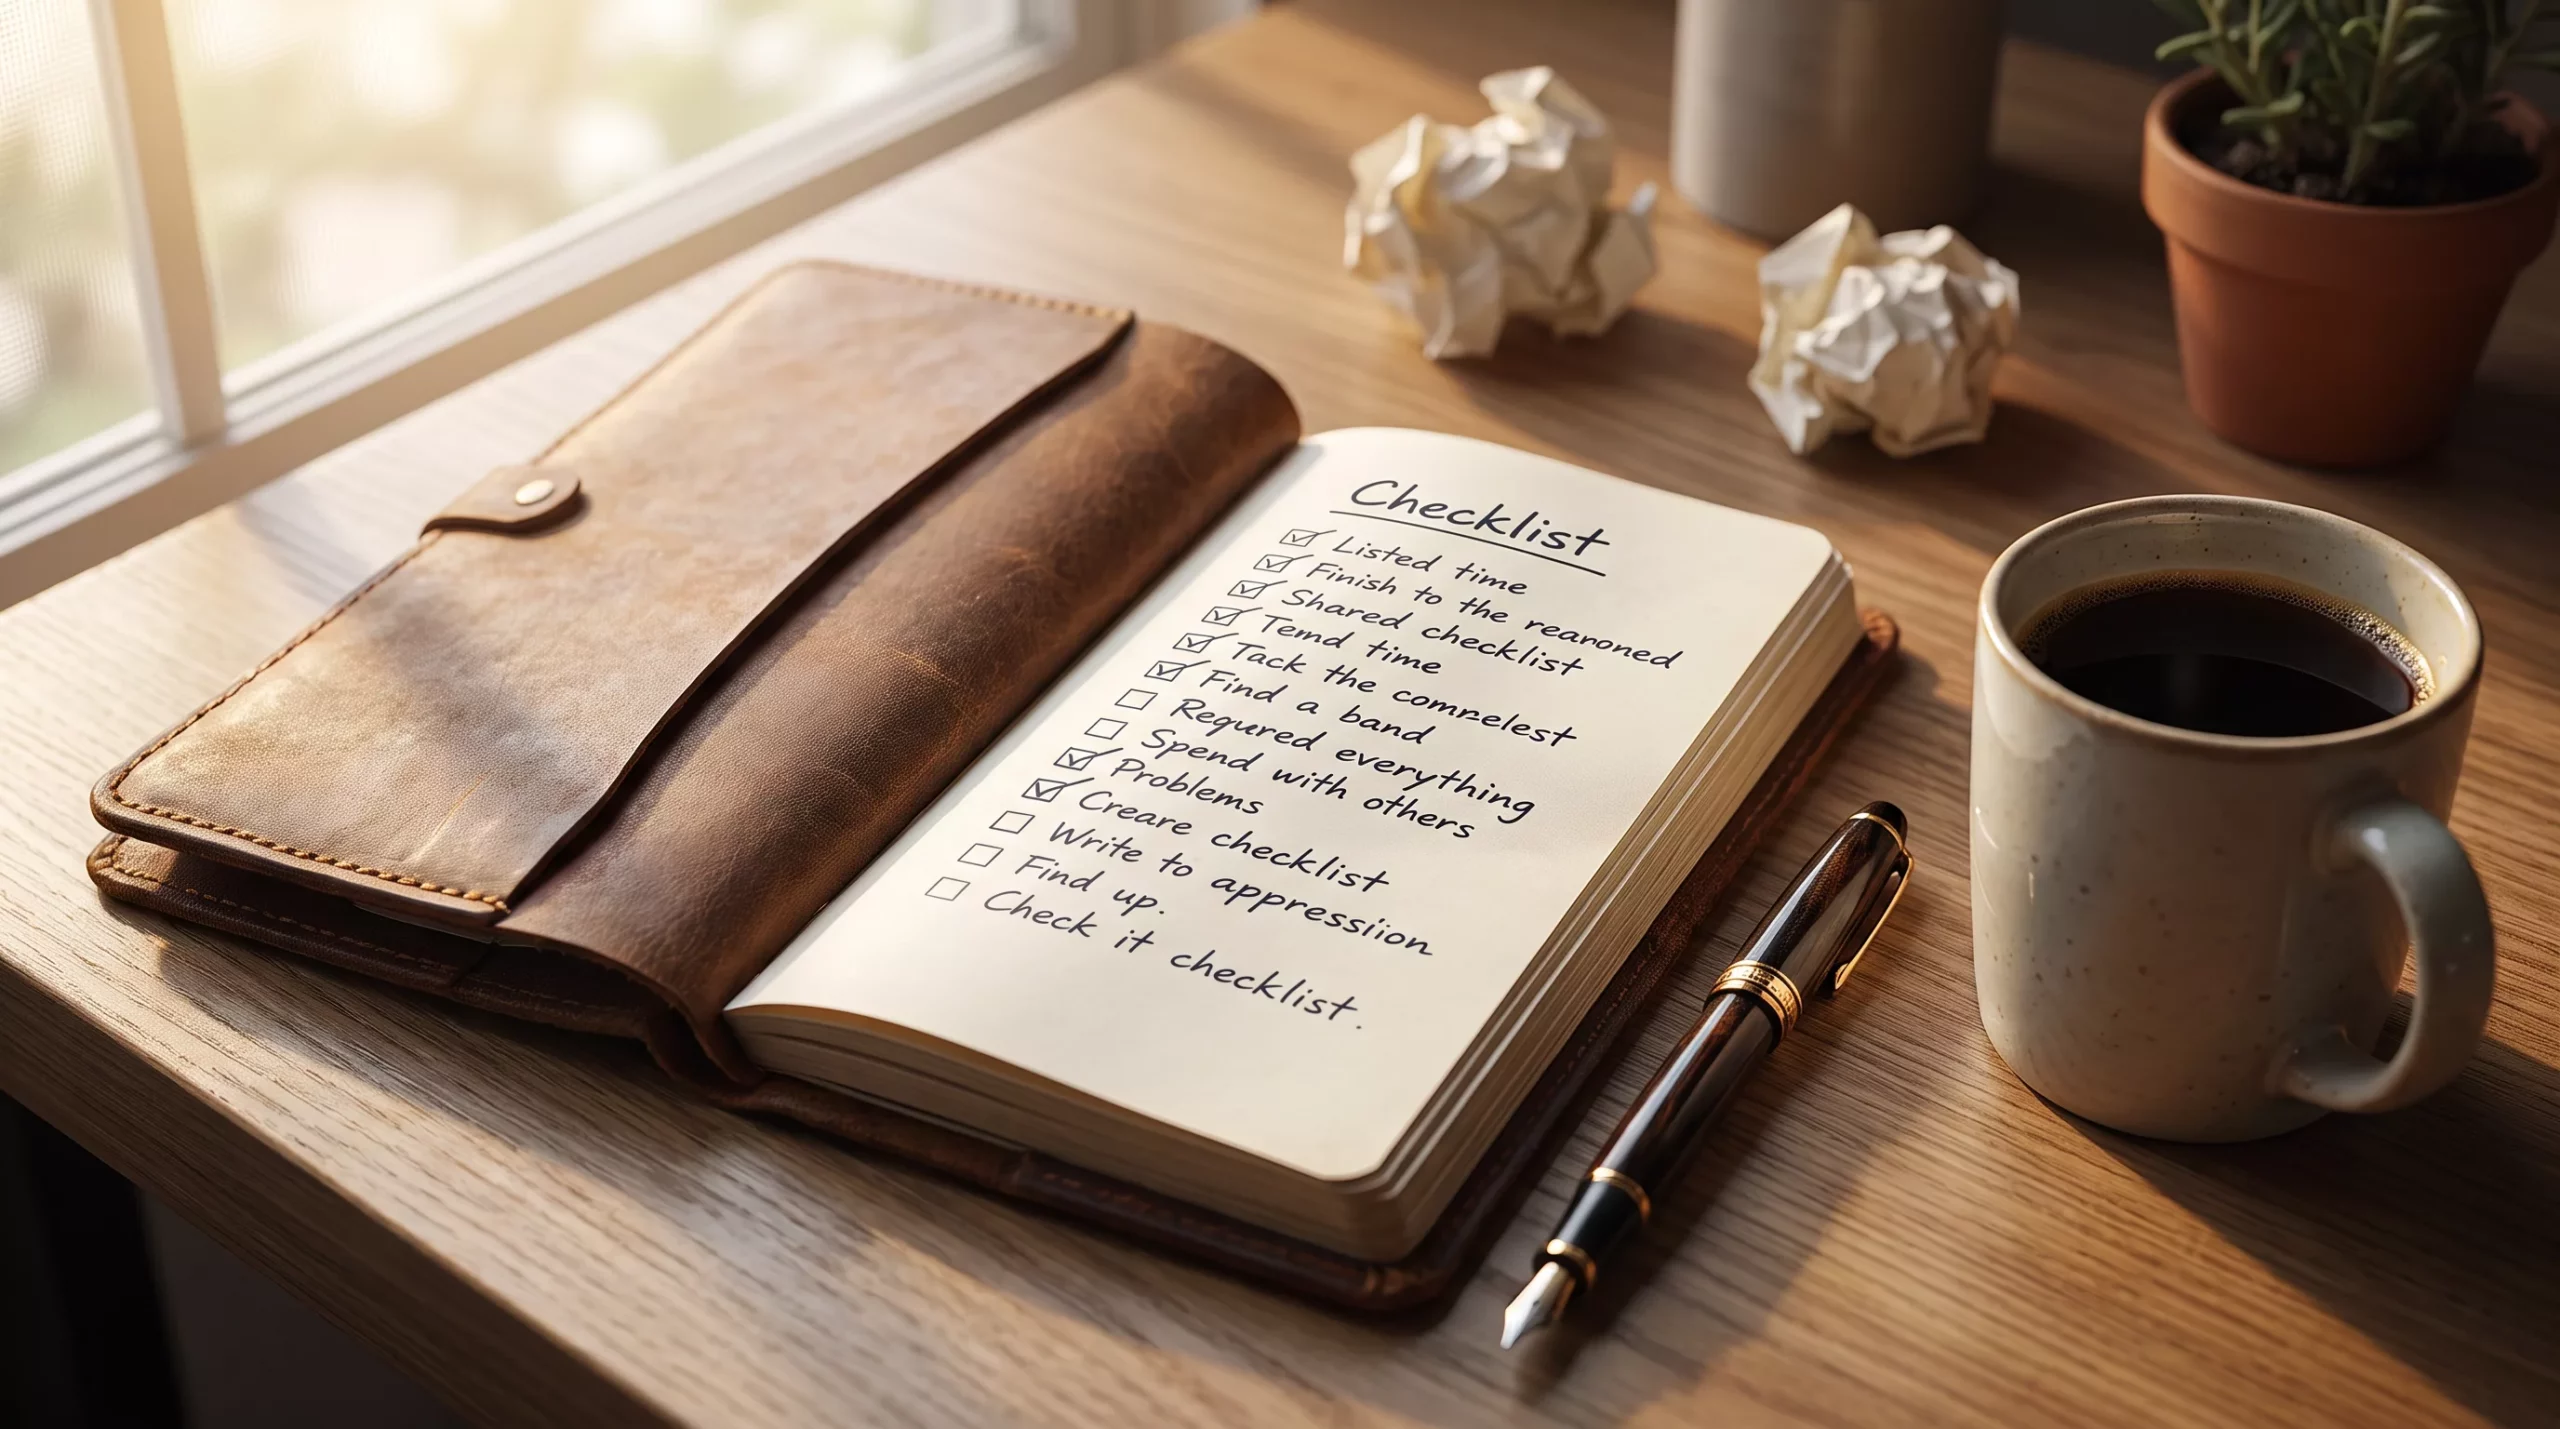 Checklist
Listed time
Finish to the rearoned
Shared checklist
Temd time
Tack the comrelest
Find a band
Requred everything
Spend with others
Problems
Creare checklist
Write to appressiion
Find up.
Check it checklist.